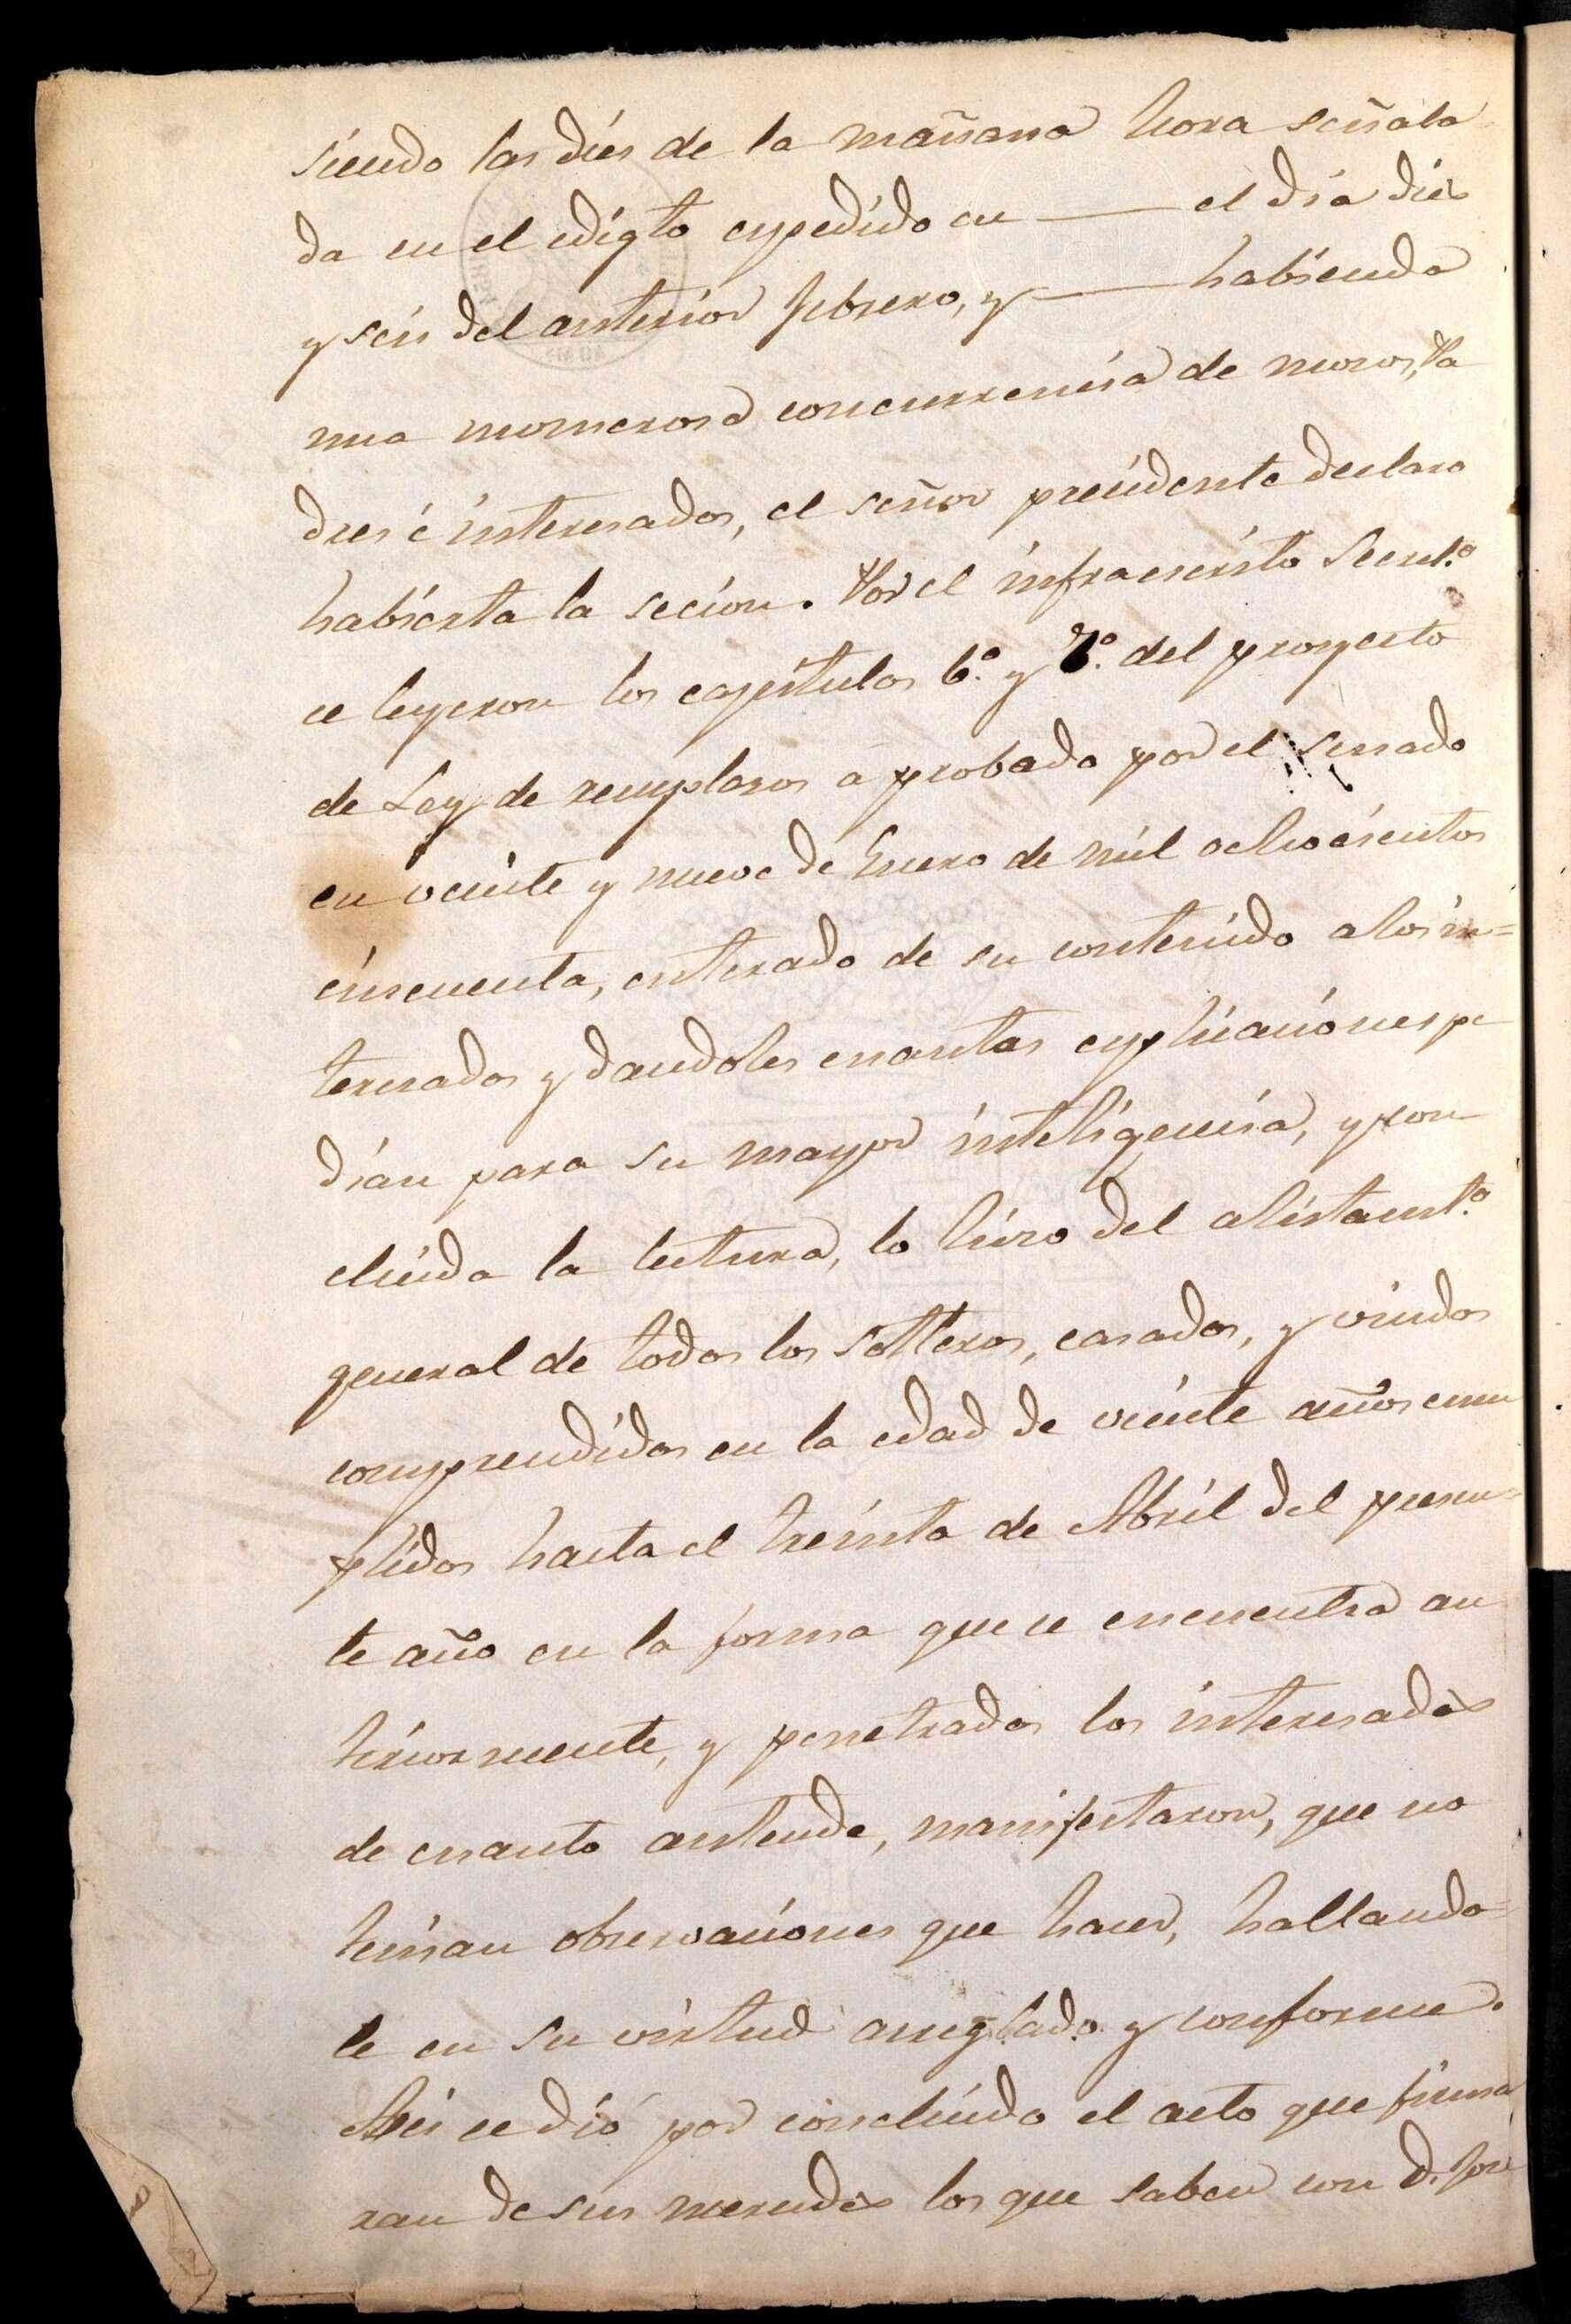 siendo las dies de la mañana hora señala
da en el edigto espedido en —— el dia dies
y seis del anterior febrero, y —— habiendo
una nomerosa concurrencia de mosos, Pa
dres é interesados, el señor presidente declaro
habierta la secion. Por el infraescrito Secret.º
ce leyeron los capitulos 6.º y 7.º del proyecto
de Ley de remplasos a probado por el Senado
en veinte y nueve de Enero de mil ochocientos
cincuenta, enterado de su contenido a los in=
teresados y dandoles cuantas esplicaciones pe
dian para su mayor inteligencia, y con
cluida la lectura, lo hizo del alistamt.º
general de todos los solteros, casados, y viudos
comprendidos en la edad de veinte años cum
plidos hasta el treinta de Abril del presen=
te año en la forma que ce encuentra an
teriormente, y penetrados los interesados
de cuanto antesede, manifestaron, que no
tenian observaciones que hacer, hallando=
le en su virtud arreglado y conforme.
Asi ce dió por concluido el acto que firma
ran de sus mercedes los que saben con D. Jose